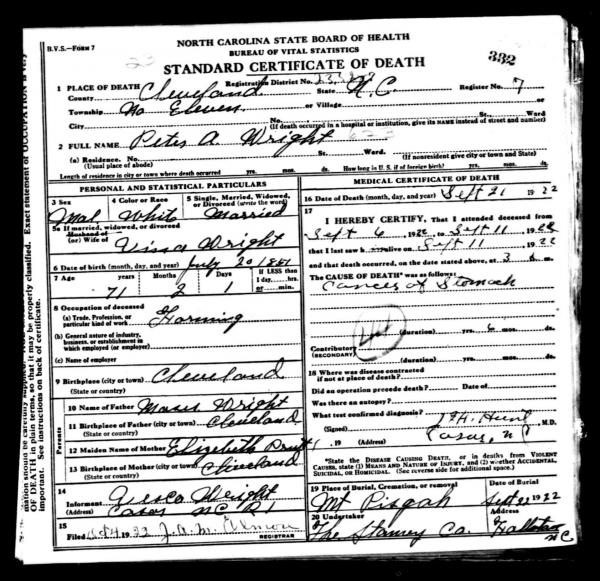 NORTH CAROLINA STATE BOARD OF HEALTH
B.V.S.—FORM 7
BUREAU OF VITAL STATISTICS
STANDARD CERTIFICATE OF DEATH
332
1 PLACE OF DEATH Registration District No.
County Cleveland State N.C. Register No. 7
Township No Eleven or Village or
City No. St. Ward
(If death occurred in a hospital or institution, give its NAME instead of street and number)
2 FULL NAME Peter A. Wright
(a) Residence. No. St. Ward.
(Usual place of abode) (If nonresident give city or town and State)
Length of residence in city or town where death occurred yrs. mos. ds. How long in U. S. if of foreign birth? yrs. mos. ds.
PERSONAL AND STATISTICAL PARTICULARS
3 Sex 4 Color or Race 5 Single, Married, Widowed, or Divorced (write the word)
Mal White Married
5a If married, widowed, or divorced
Husband of
(or) Wife of Wright
6 Date of birth (month, day, and year) July 20 1851
7 Age years Months Days If LESS than 1 day, hrs. or min.
71 2 1
8 Occupation of deceased
(a) Trade, Profession, or particular kind of work Farming
(b) General nature of industry, business, or establishment in which employed (or employer)
(c) Name of employer
9 Birthplace (city or town) Cleveland
(State or country)
Parents
10 Name of Father Wright
11 Birthplace of Father (city or town) Cleveland
(State or country)
12 Maiden Name of Mother Elizabeth
13 Birthplace of Mother (city or town) Cleveland
(State or country)
14
Informant Wright
(Address) Casar NC R1
15
Filed Oct 4 1922 J. A. M.
REGISTRAR
MEDICAL CERTIFICATE OF DEATH
16 Date of Death (month, day, and year) Sept 21 1922
17
I HEREBY CERTIFY, That I attended deceased from
Sept 6 1922 to Sept 11 1922
that I last saw h alive on Sept 11 1922
and that death occurred, on the date stated above, at 3 m.
The CAUSE OF DEATH* was as follows:
Cancer of Stomach
(duration) yrs. 6 mos. ds.
Contributory
(SECONDARY)
(duration) yrs. mos. ds.
18 Where was disease contracted
if not at place of death?
Did an operation precede death? Date of
Was there an autopsy?
What test confirmed diagnosis?
(Signed) Hunt M.D.
, 19 (Address) Casar, NC
*State the DISEASE CAUSING DEATH, or in deaths from VIOLENT CAUSES, state (1) MEANS AND NATURE OF INJURY, and (2) whether ACCIDENTAL, SUICIDAL, or HOMICIDAL. (See reverse side for additional space.)
19 Place of Burial, Cremation, or removal Date of Burial
Mt Pisgah Sept 22 1922
20 Undertaker (Address)
The Stamey Co.
NC